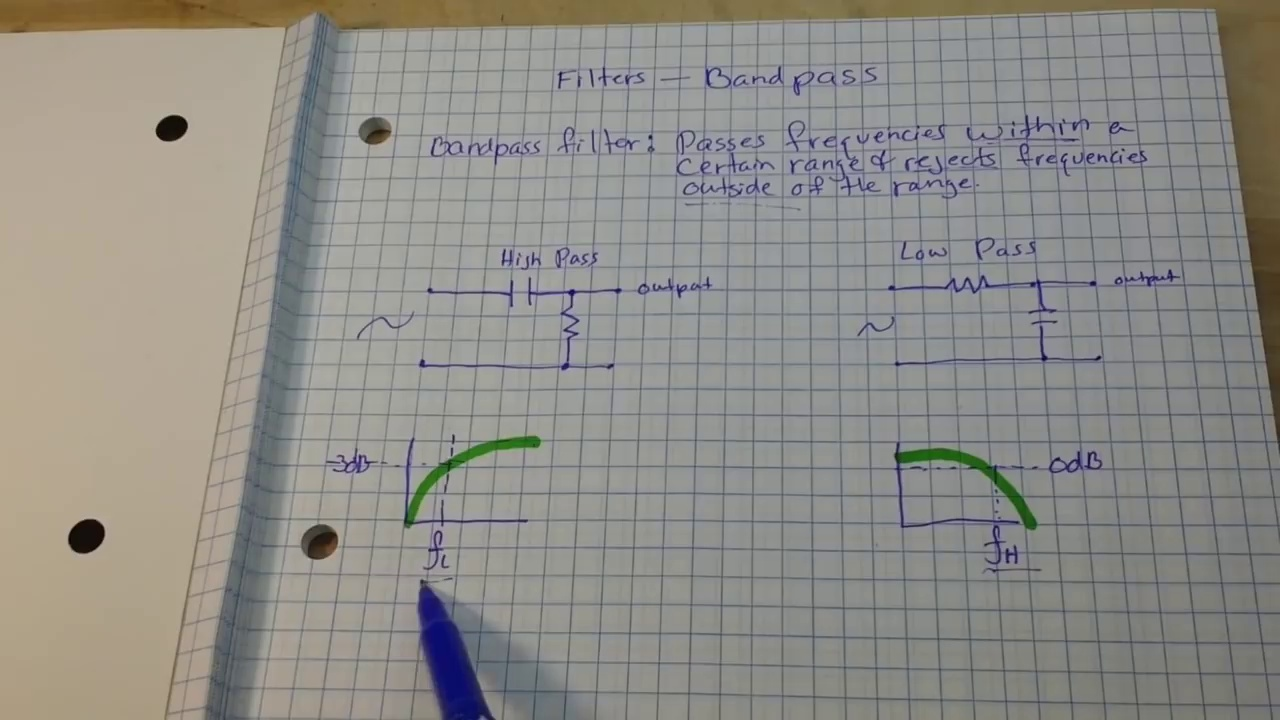 Filters — Bandpass
Bandpass filter: Passes frequencies within a
certain range & rejects frequencies
outside of the range.
High Pass
output
Low Pass
output
-3dB
fL
0dB
fH